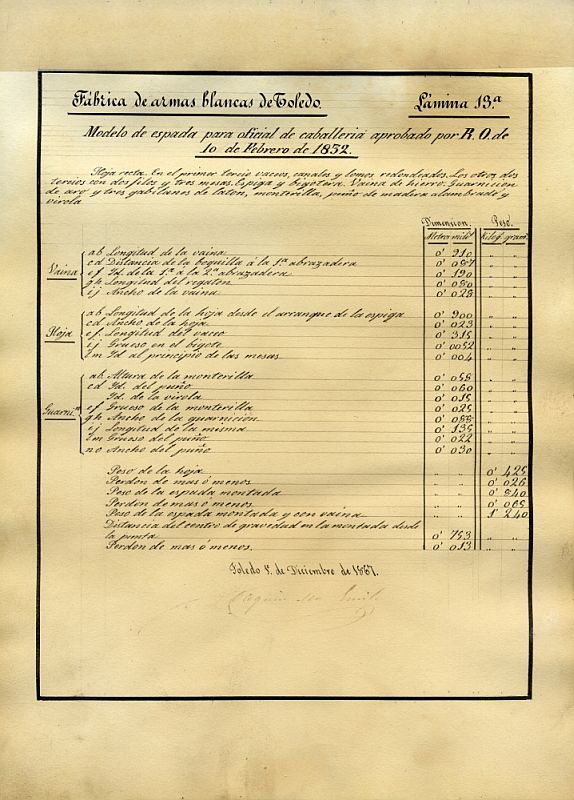 Fábrica de armas blancas de Toledo. Lámina 13.ª
Modelo de espada para oficial de caballeria aprobado por R. O. de
10 de Febrero de 1832.
Hoja recta. En el primer tercio vaceos, canales y lomos redondeados. Los otros dos
tercios con dos filos y tres mesas. Espiga y bigotera. Vaina de hierro. Guarnicion
de aro y tres gabilanes de laton, monterilla, puño de madera alambrado y
virola
Dimension. Peso.
Metro milº Kilog. gram.
Vaina
ab Longitud de la vaina 0' 910 " "
cd Distancia de la boquilla á la 1ª abrazadera 0' 087 " "
ef Id. de la 1ª á la 2ª abrazadera 0' 190 " "
gh Longitud del regaton 0' 080 " "
ij Ancho de la vaina 0' 028 " "
Hoja
ab Longitud de la hoja desde el arranque de la espiga 0' 900 " "
cd Ancho de la hoja 0' 023 " "
ef Longitud del vaceo 0' 315 " "
ij Grueso en el bigote 0' 0052 " "
lm Id al principio de las mesas 0' 004 " "
Guarni.ⁿ
ab Altura de la monterilla 0' 058 " "
cd Id. del puño 0' 060 " "
Id. de la virola 0' 015 " "
ef Grueso de la monterilla 0' 025 " "
gh Ancho de la guarnicion 0' 088 " "
ij Longitud de la misma 0' 135 " "
lm Grueso del puño 0' 022 " "
no Ancho del puño 0' 030 " "
Peso de la hoja " " 0' 425
Perdon de mas ó menos " " 0' 026
Peso de la espada montada " " 0' 840
Perdon de mas ó menos " " 0' 065
Peso de la espada montada y con vaina " " 1' 240
Distancia del centro de gravedad en la montada desde
la punta 0' 753 " "
Perdon de mas ó menos. 0' 013 " "
Toledo 1º de Diciembre de 1867.